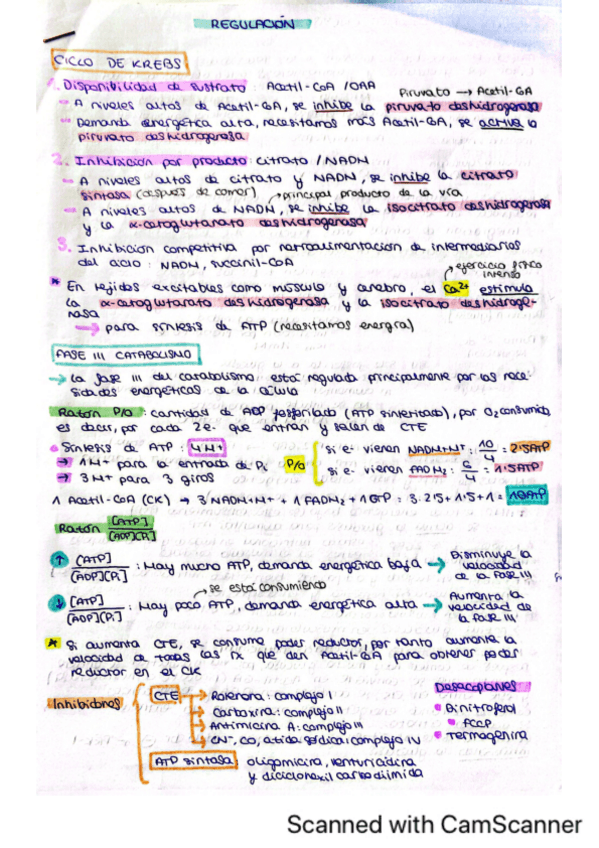 REGULACIÓN
CICLO DE KREBS
1. Disponibilidad de sustrato Acetil-CoA / OAA
Piruvato → Acetil-CoA
- A niveles altos de Acetil-CoA, se inhibe la piruvato deshidrogenasa
- Demanda energética alta, necesitamos más Acetil-CoA, se activa la
piruvato deshidrogenasa
2. Inhibición por producto: citrato / NADH
- A niveles altos de citrato y NADH, se inhibe la citrato
sintasa (después de comer) → principal producto de la vía
- A niveles altos de NADH, se inhibe la isocitrato deshidrogenasa
y la α-cetoglutarato deshidrogenasa
3. Inhibición competitiva por retroalimentación de intermediarios
del ciclo: NADH, succinil-CoA
→ ejercicio físico intenso
* En tejidos excitables como músculo y cerebro, el Ca2+ estimula
la α-cetoglutarato deshidrogenasa y la isocitrato deshidroge-
nasa
→ para síntesis de ATP (necesitamos energía)
FASE III CATABOLISMO
→ La fase III del catabolismo está regulada principalmente por las nece-
sidades energéticas de la célula
Razón P/O: cantidad de ADP fosforilado (ATP sintetizado), por O2 consumido,
es decir, por cada 2e- que entran y salen de CTE
• Síntesis de ATP: 4H+
→ 1H+ para la entrada de Pi
→ 3H+ para 3 giros
P/O
si e- vienen NADH+H+: 10/4 = 2.5ATP
si e- vienen FADH2: 6/4 = 1.5ATP
1 Acetil-CoA (CK) → 3NADH+H+ + 1FADH2 + 1GTP = 3·2.5+1.5+1 = 10ATP
Razón [ATP]/[ADP][Pi]
↑ [ATP]/[ADP][Pi]: Hay mucho ATP, demanda energética baja → Disminuye la
velocidad
de la Fase III
→ se está consumiendo
↓ [ATP]/[ADP][Pi]: Hay poco ATP, demanda energética alta → Aumenta la
velocidad de
la Fase III
* Si aumenta CTE, se consume poder reductor, por tanto aumenta la
velocidad de todas las rx que den Acetil-CoA para obtener poder
reductor en el CK
Inhibidores
CTE
→ Rotenona: complejo I
→ Carboxina: complejo II
→ Antimicina A: complejo III
→ CN-, CO, azida sódica: complejo IV
ATP sintasa
oligomicina, venturicidina
y diciclohexil carbodiimida
Desacoplantes
• Dinitrofenol
• FCCP
• Termogenina
Scanned with CamScanner